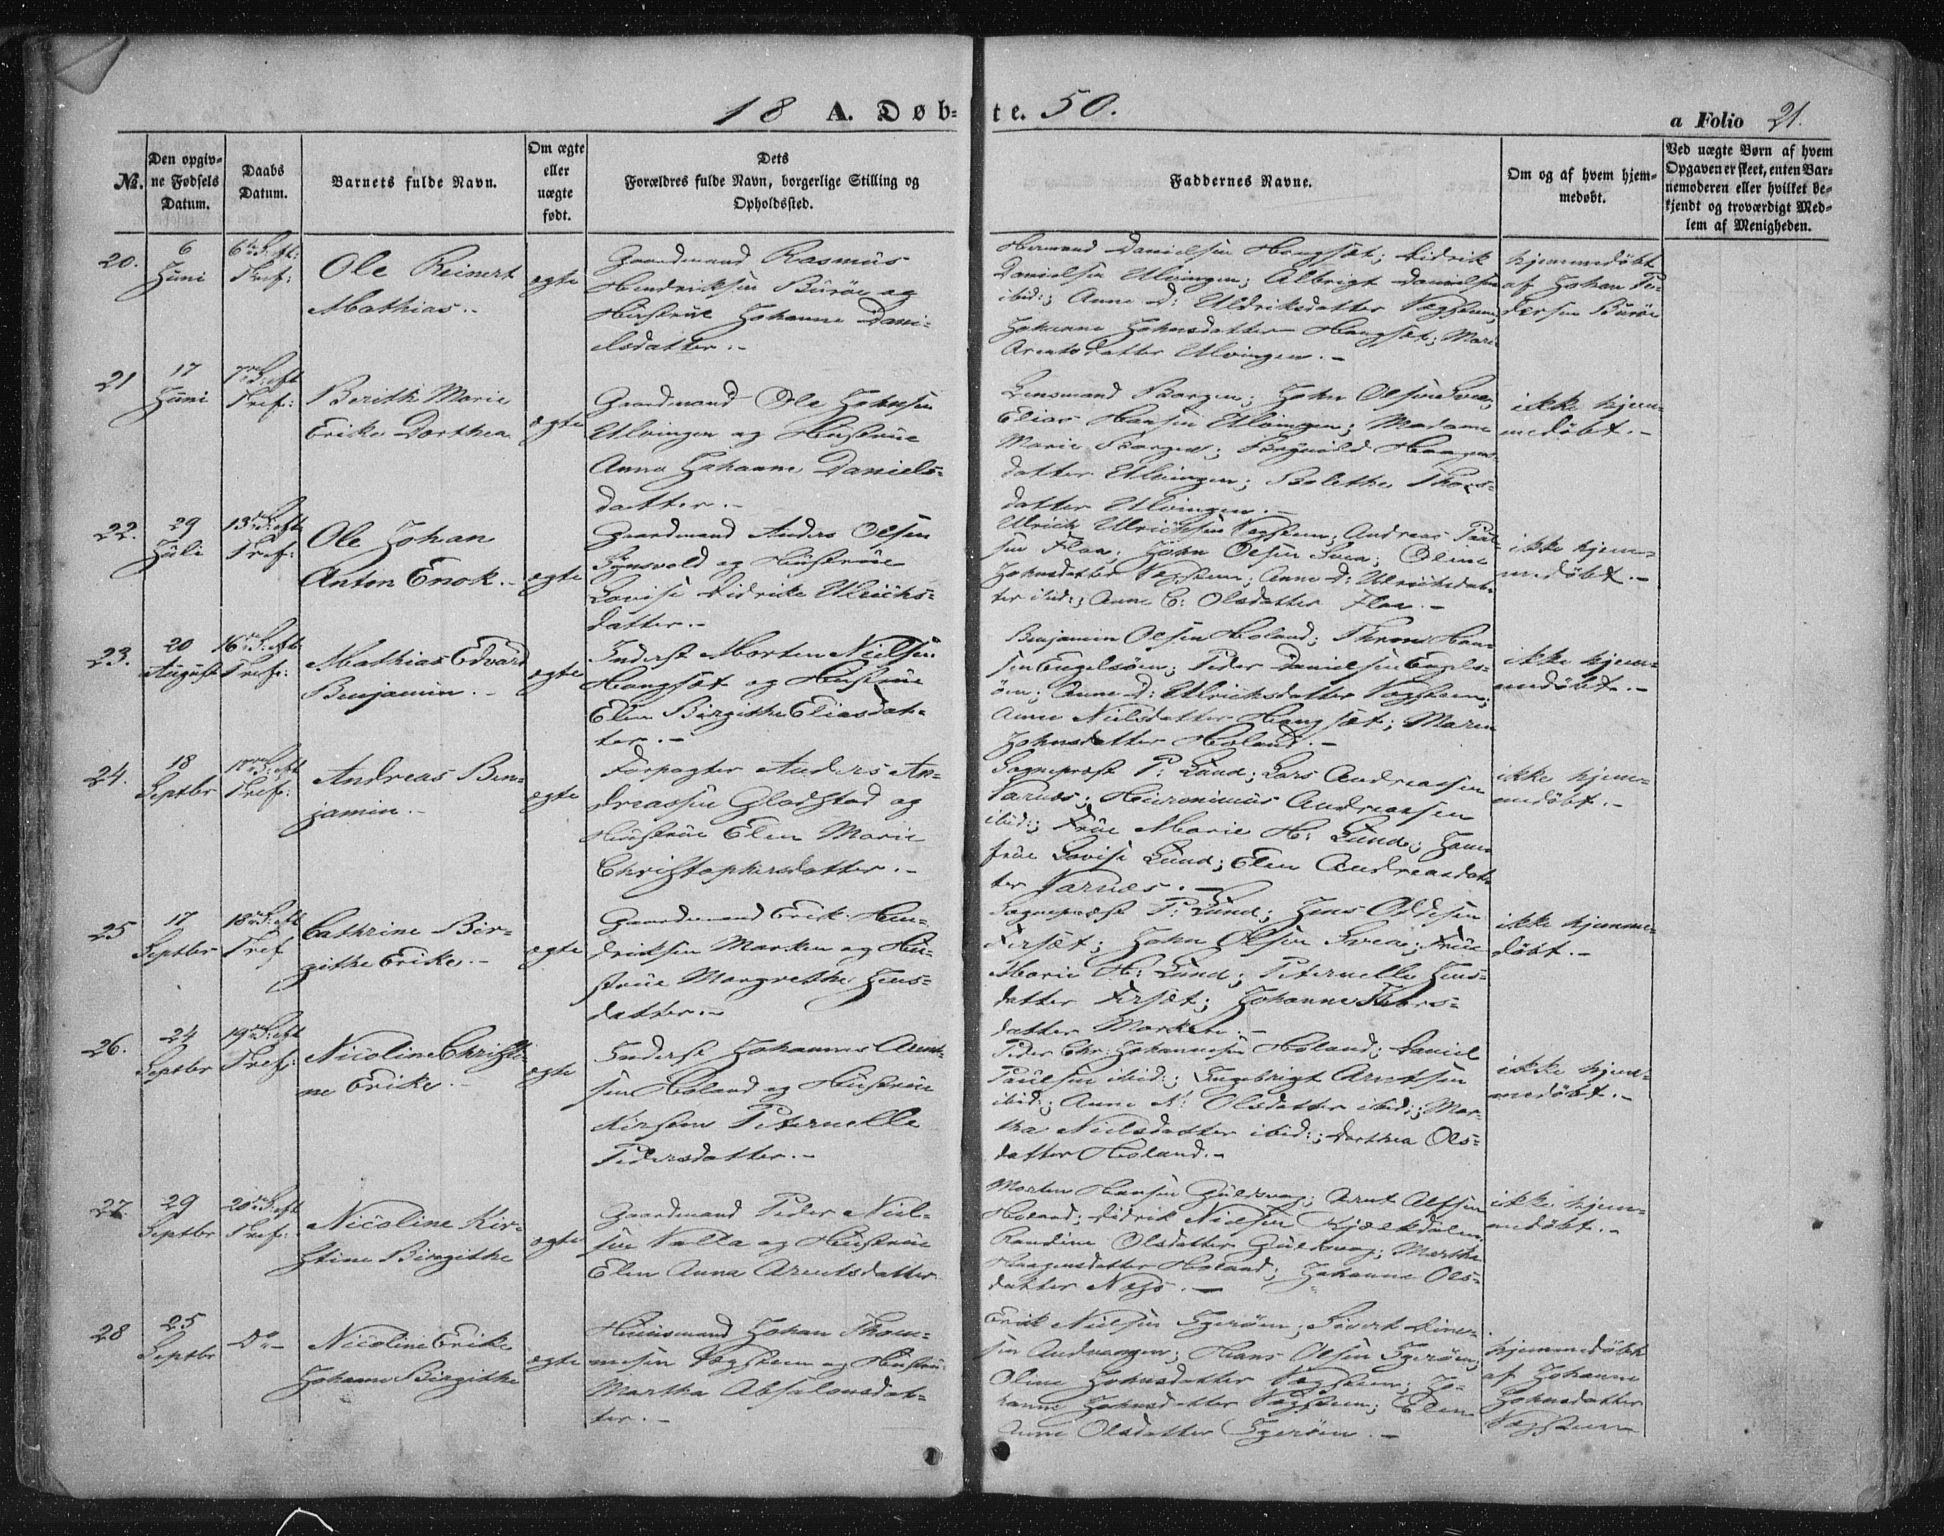 18 A. Døb= te. 50.
a Folio 21.
No.
Den opgiv=
ne Fødsels
Datum.
Daabs
Datum.
Barnets fulde Navn.
Om ægte
eller
uægte
født.
Dets
Forældres fulde Navn, borgerlige Stilling og
Opholdssted.
Faddernes Navne.
Om og af hvem hjem=
medøbt.
Ved uægte Børn af hvem
Opgaven er skeet, enten Bar=
nemoderen eller hvilket be=
kjendt og troværdigt Med=
lem af Menigheden.
20.
6
Juni
6te S: eft:
Tref:
Ole Reinert
Mathias.-
ægte
Gaardmand Rasmus
Hendriksen Burøe og
Hustrue Johanne Dani=
elsdatter.-
Hermand Danielsen Hongsæt; Didrik
Danielsen Ulvingen; Albrigt Danielsen
ibid:; Anne D: Uldriksdatter Vegsteen;
Johanne Johnsdatter Hongsæt; Mari
Arentsdatter Ulvingen.-
hjemmedøbt
af Johan Pe=
dersen Burøe
21
17
Juni
7de S: eft
Tref:
Berith Marie
Erike Dorthea
ægte
Gaardmand Ole Johnsen
Ulvingen og Hustrue
Anna Johanne Daniels=
datter.-
Lensmand Borgen; John Olsen Svea;
Elias Hansen Ulvingen; Madame
Marie Borgen; Haagens
datter Ulvingen; Bolethe Thors=
datter Ulvingen.-
ikke hjem=
medøbt.-
22.
29
Juli
13de S: eft
Tref:
Ole Johan
Anton Enok.-
ægte
Gaardmand Anders Olsen
og Hustrue
Lovise Didrike Ulrichs=
datter.-
Ulrich Ulrichsen Vegsteen; Andreas Paul
sen Flaa; John Olsen Svea; Oline
Johnsdatter Vegsteen; Anne D: Ulrichsdat=
ter ibid:; Anne C: Olsdatter Flaa.-
ikke hjem=
medøbt.-
23.
20
August
16de S: eft
Tref:
Mathias Edvard
Benjamin.-
ægte
Inderst Morten Nielsen
Hongsæt og Hustrue
Elen Birgithe Eliasdat=
ter.-
Benjamin Olsen Høland; Thron Han=
sen Engelsøen; Peder Danielsen Engels=
øen; Anne D: Ulriksdatter Vegsteen;
Anne Nielsdatter Hongsæt; Maren
Johnsdatter Høland.-
ikke hjem=
medøbt.-
24.
18
Septbr
17de S: eft
Tref:
Andreas Ben=
jamin.-
ægte
Forpagter Anders An=
dreassen Gladstad og
Hustrue Elen Marie
Christophersdatter.-
Sognepræst P: Lund; Lars Andreassen
Varnes; Hieronimus Andreassen
ibid:; Frue Marie H: Lund; Jom
frue Lovise Lund; Elen Andreasdat
ter Varnes.-
ikke hjem=
medøbt.-
25
17
Septbr
18de S: eft
Tref
Cathrine Bir=
githe Erike.-
ægte
Gaardmand Erik Hen=
driksen Marken og Hu=
strue Margrethe Jens=
datter.-
Sognepræst P: Lund; Jens Oddesen
Forsæt; John Olsen Svea; Frue
Marie H: Lund; Peternelle Jens=
datter Forsæt; Johanne Thors=
datter Marken.-
ikke hjemme=
døbt.-
26.
24
Septbr
19de S: eft
Tref:
Nicoline Christi=
ne Erike.-
ægte
Inderst Johannes Arent=
sen Høland og Hustrue
Kirsten Peternelle
Pedersdatter.-
Peder Chr: Johannesen Høland; Daniel
Paulsen ibid:; Engebrigt Arntsen
ibid:; Anne N: Olsdatter ibid:; Mar=
tha Nielsdatter ibid:; Dorthea Ols=
datter Høland.-
ikke hjem=
medøbt.-
27.
29
Septbr
20de S: eft
Tref:
Nicoline Kir=
stine Birgithe
ægte
Gaardmand Peder Niel=
sen Valla og Hustrue
Elen Anna Arentsdatter
Morten Hansen Guldvog; Arnt Alfsen
Høland; Didrik Nielsen Kjelkdalen;
Randine Olsdatter Guldvog; Martha
Haagensdatter Høland; Johanne Ols=
datter Næss.-
ikke hjem=
medøbt.-
28
25
Septbr
Do-
Nicoline Erike
Johanne Birgithe
ægte
Huusmand Johan Thom=
mesen Vegsteen og Hustrue
Martha Absalonsdat=
ter.-
Erik Nielsen Igerøen; Sivert Einer=
sen Andvaagen; Hans Olsen Igerøen;
Oline Johnsdatter Vegsteen; Jo=
hanne Johnsdatter Vegsteen; Elen
Anne Olsdatter Igerøen.-
hjemmedøbt
af Johanne
Johnsdatter
Vegsteen